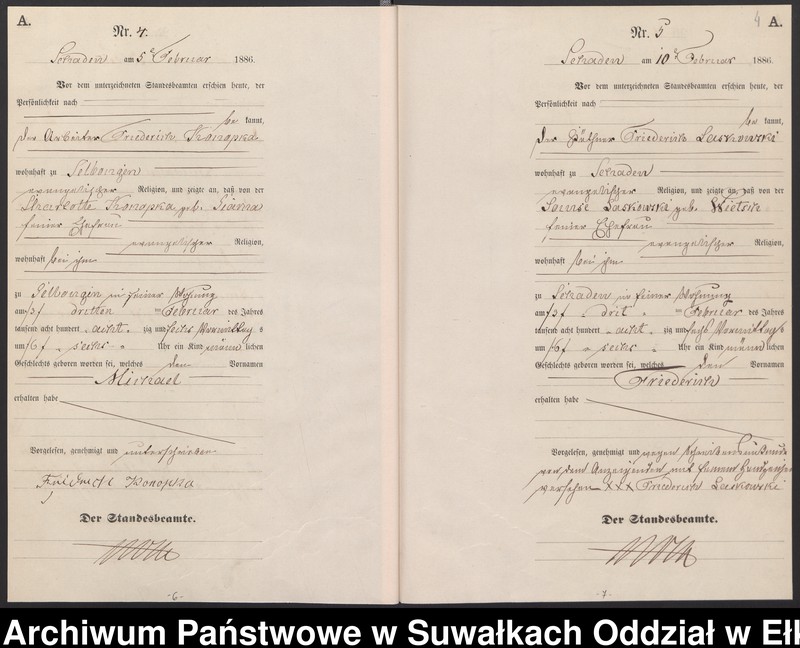 A.
Nr. 4.
am 5ᵗ Februar 1886.
Vor dem unterzeichneten Standesbeamten erschien heute, der
Persönlichkeit nach
be kannt,
der Arbeiter Friederich Konopka
wohnhaft zu
evangelischer Religion, und zeigte an, daß von der
Charlotte Konopka geb.
seiner Ehefrau
evangelischer Religion,
wohnhaft bei ihm
zu in seiner Wohnung
am /3/ dritten Februar des Jahres
tausend acht hundert acht zig und sechs Vormittag s
um /6/ sechs Uhr ein Kind männ lichen
Geschlechts geboren worden sei, welches den Vornamen
Michael
erhalten habe
Vorgelesen, genehmigt und unterschrieben
Friedrich Konopka
Der Standesbeamte.
-6-
4 A.
Nr. 5
am 10ᵗ Februar 1886.
Vor dem unterzeichneten Standesbeamten erschien heute, der
Persönlichkeit nach
be kannt,
der Käthner Friederich Laskowski
wohnhaft zu
evangelischer Religion, und zeigte an, daß von der
Louise Laskowski geb.
seiner Ehefrau
evangelischer Religion,
wohnhaft bei ihm
zu in seiner Wohnung
am /3/ drit Februar des Jahres
tausend acht hundert acht zig und sechs Vormittags
um /6/ sechs Uhr ein Kind männ lichen
Geschlechts geboren worden sei, welches den Vornamen
Friederich
erhalten habe
Vorgelesen, genehmigt und wegen
von dem Anzeigenden mit seinem Handzeichen
versehen XXX Friederich Laskowski
Der Standesbeamte.
-7-
Archiwum Państwowe w Suwałkach Oddział w Ełk